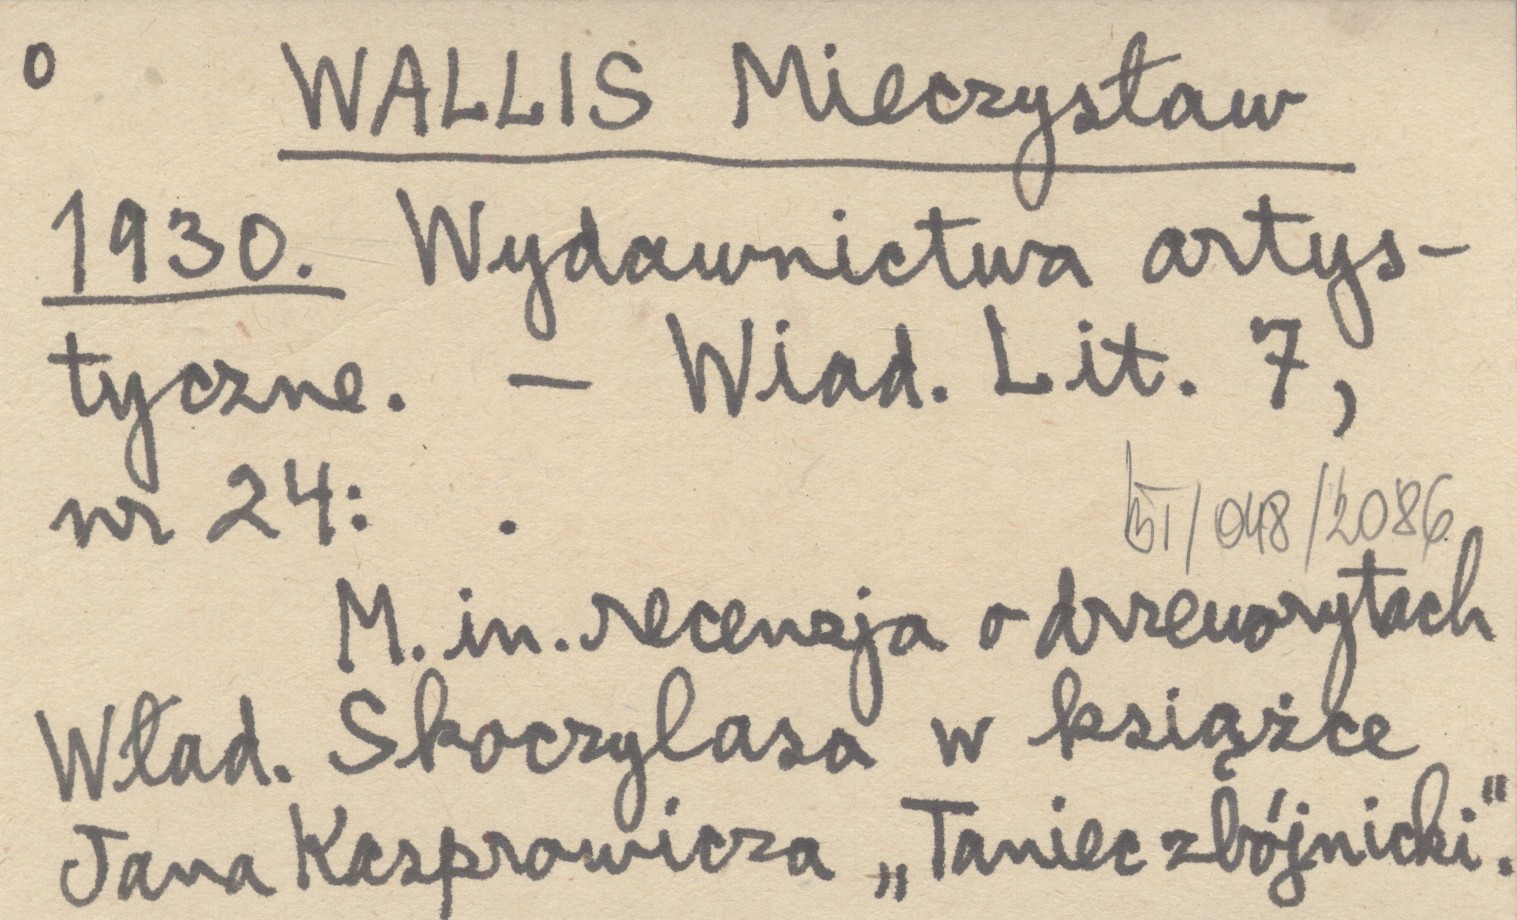 o WALLIS Mieczysław
1930. Wydawnictwa artys-
tyczne. — Wiad. Lit. 7,
nr 24: .
/048/2086
M. in. recenzja o drzeworytach
Wład. Skoczylasa w książce
Jana Kasprowicza „Taniec zbójnicki".